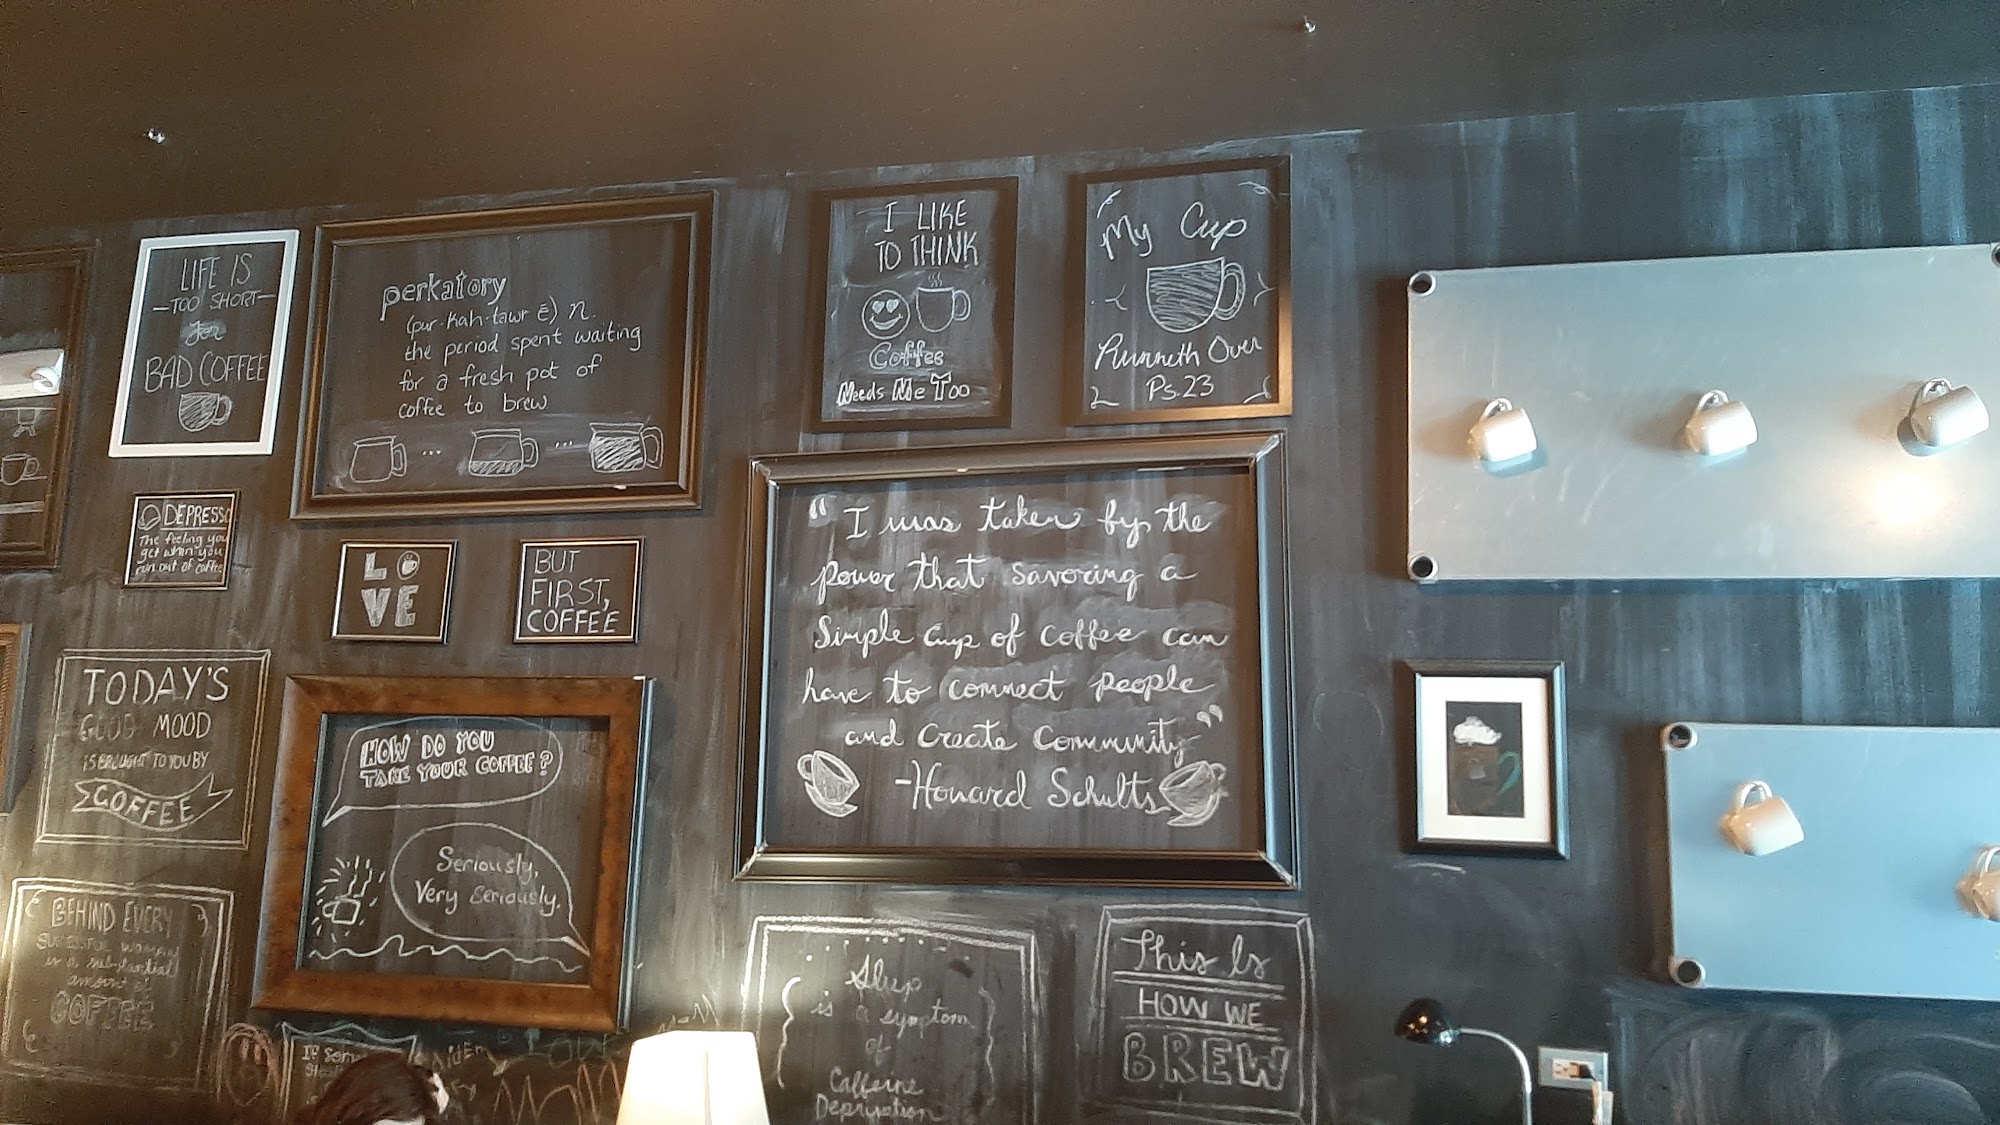 LIFE IS
TOO SHORT
for
BAD COFFEE
perkatory
(pur-kah-tawr ē) n.
the period spent waiting
for a fresh pot of
coffee to brew
I LIKE
TO THINK
Coffee
Needs Me Too
My Cup
Runneth Over
Ps. 23
DEPRESSO
The feeling you
get when you
run out of coffee
LOVE
BUT
FIRST,
COFFEE
"I was taken by the
power that savoring a
Simple cup of coffee can
have to connect people
and create Community"
-Howard Schults
TODAY'S
GOOD MOOD
IS BROUGHT TO YOU BY
COFFEE
HOW DO YOU
TAKE YOUR COFFEE?
Seriously,
Very Seriously.
BEHIND EVERY
SUCCESSFUL WOMAN
is a substantial
amount of
COFFEE
Sleep
is a symptom
of
Caffeine
Depryvation
This Is
HOW WE
BREW